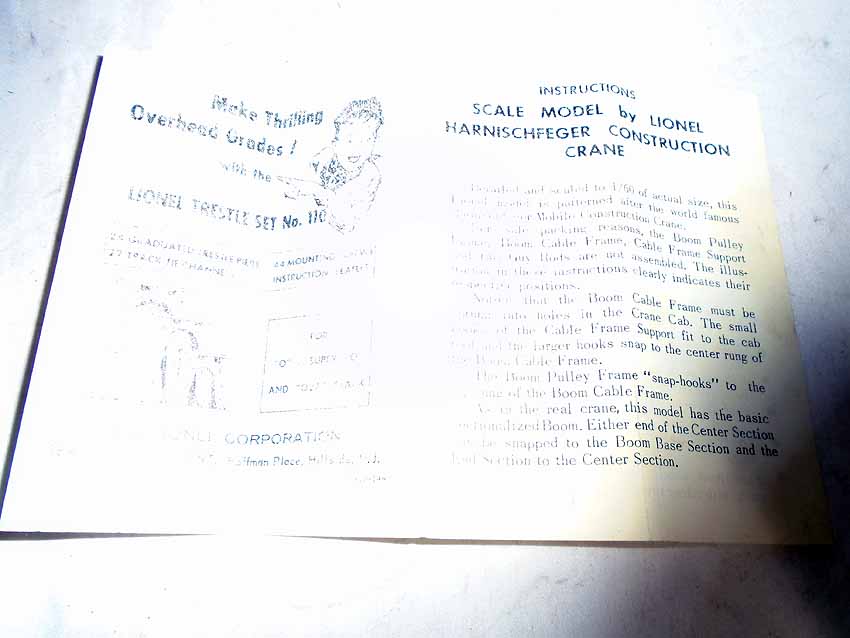 Make Thrilling
Overhead Grades!
with the
LIONEL TRESTLE SET No. 110
24 GRADUATED TRESTLE PIERS
22 TRACK TIE CHANNELS
44 MOUNTING
INSTRUCTION LEAFLET
FOR
SUPER O
AND TRACK
CORPORATION
Hoffman Place, Hillside, N.J.
INSTRUCTIONS
SCALE MODEL by LIONEL
HARNISCHFEGER CONSTRUCTION
CRANE
Detailed and scaled to 1/50 of actual size, this
Lionel model is patterned after the world famous
Mobile Construction Crane.
For safe packing reasons, the Boom Pulley
Frame, Boom Cable Frame, Cable Frame Support
and the Guy Rods are not assembled. The illus-
in these instructions clearly indicates their
respective positions.
Notice that the Boom Cable Frame must be
into holes in the Crane Cab. The small
of the Cable Frame Support fit to the cab
and the larger hooks snap to the center rung of
the Boom Cable Frame.
The Boom Pulley Frame "snap-hooks" to the
of the Boom Cable Frame.
As in the real crane, this model has the basic
Boom. Either end of the Center Section
be snapped to the Boom Base Section and the
Section to the Center Section.